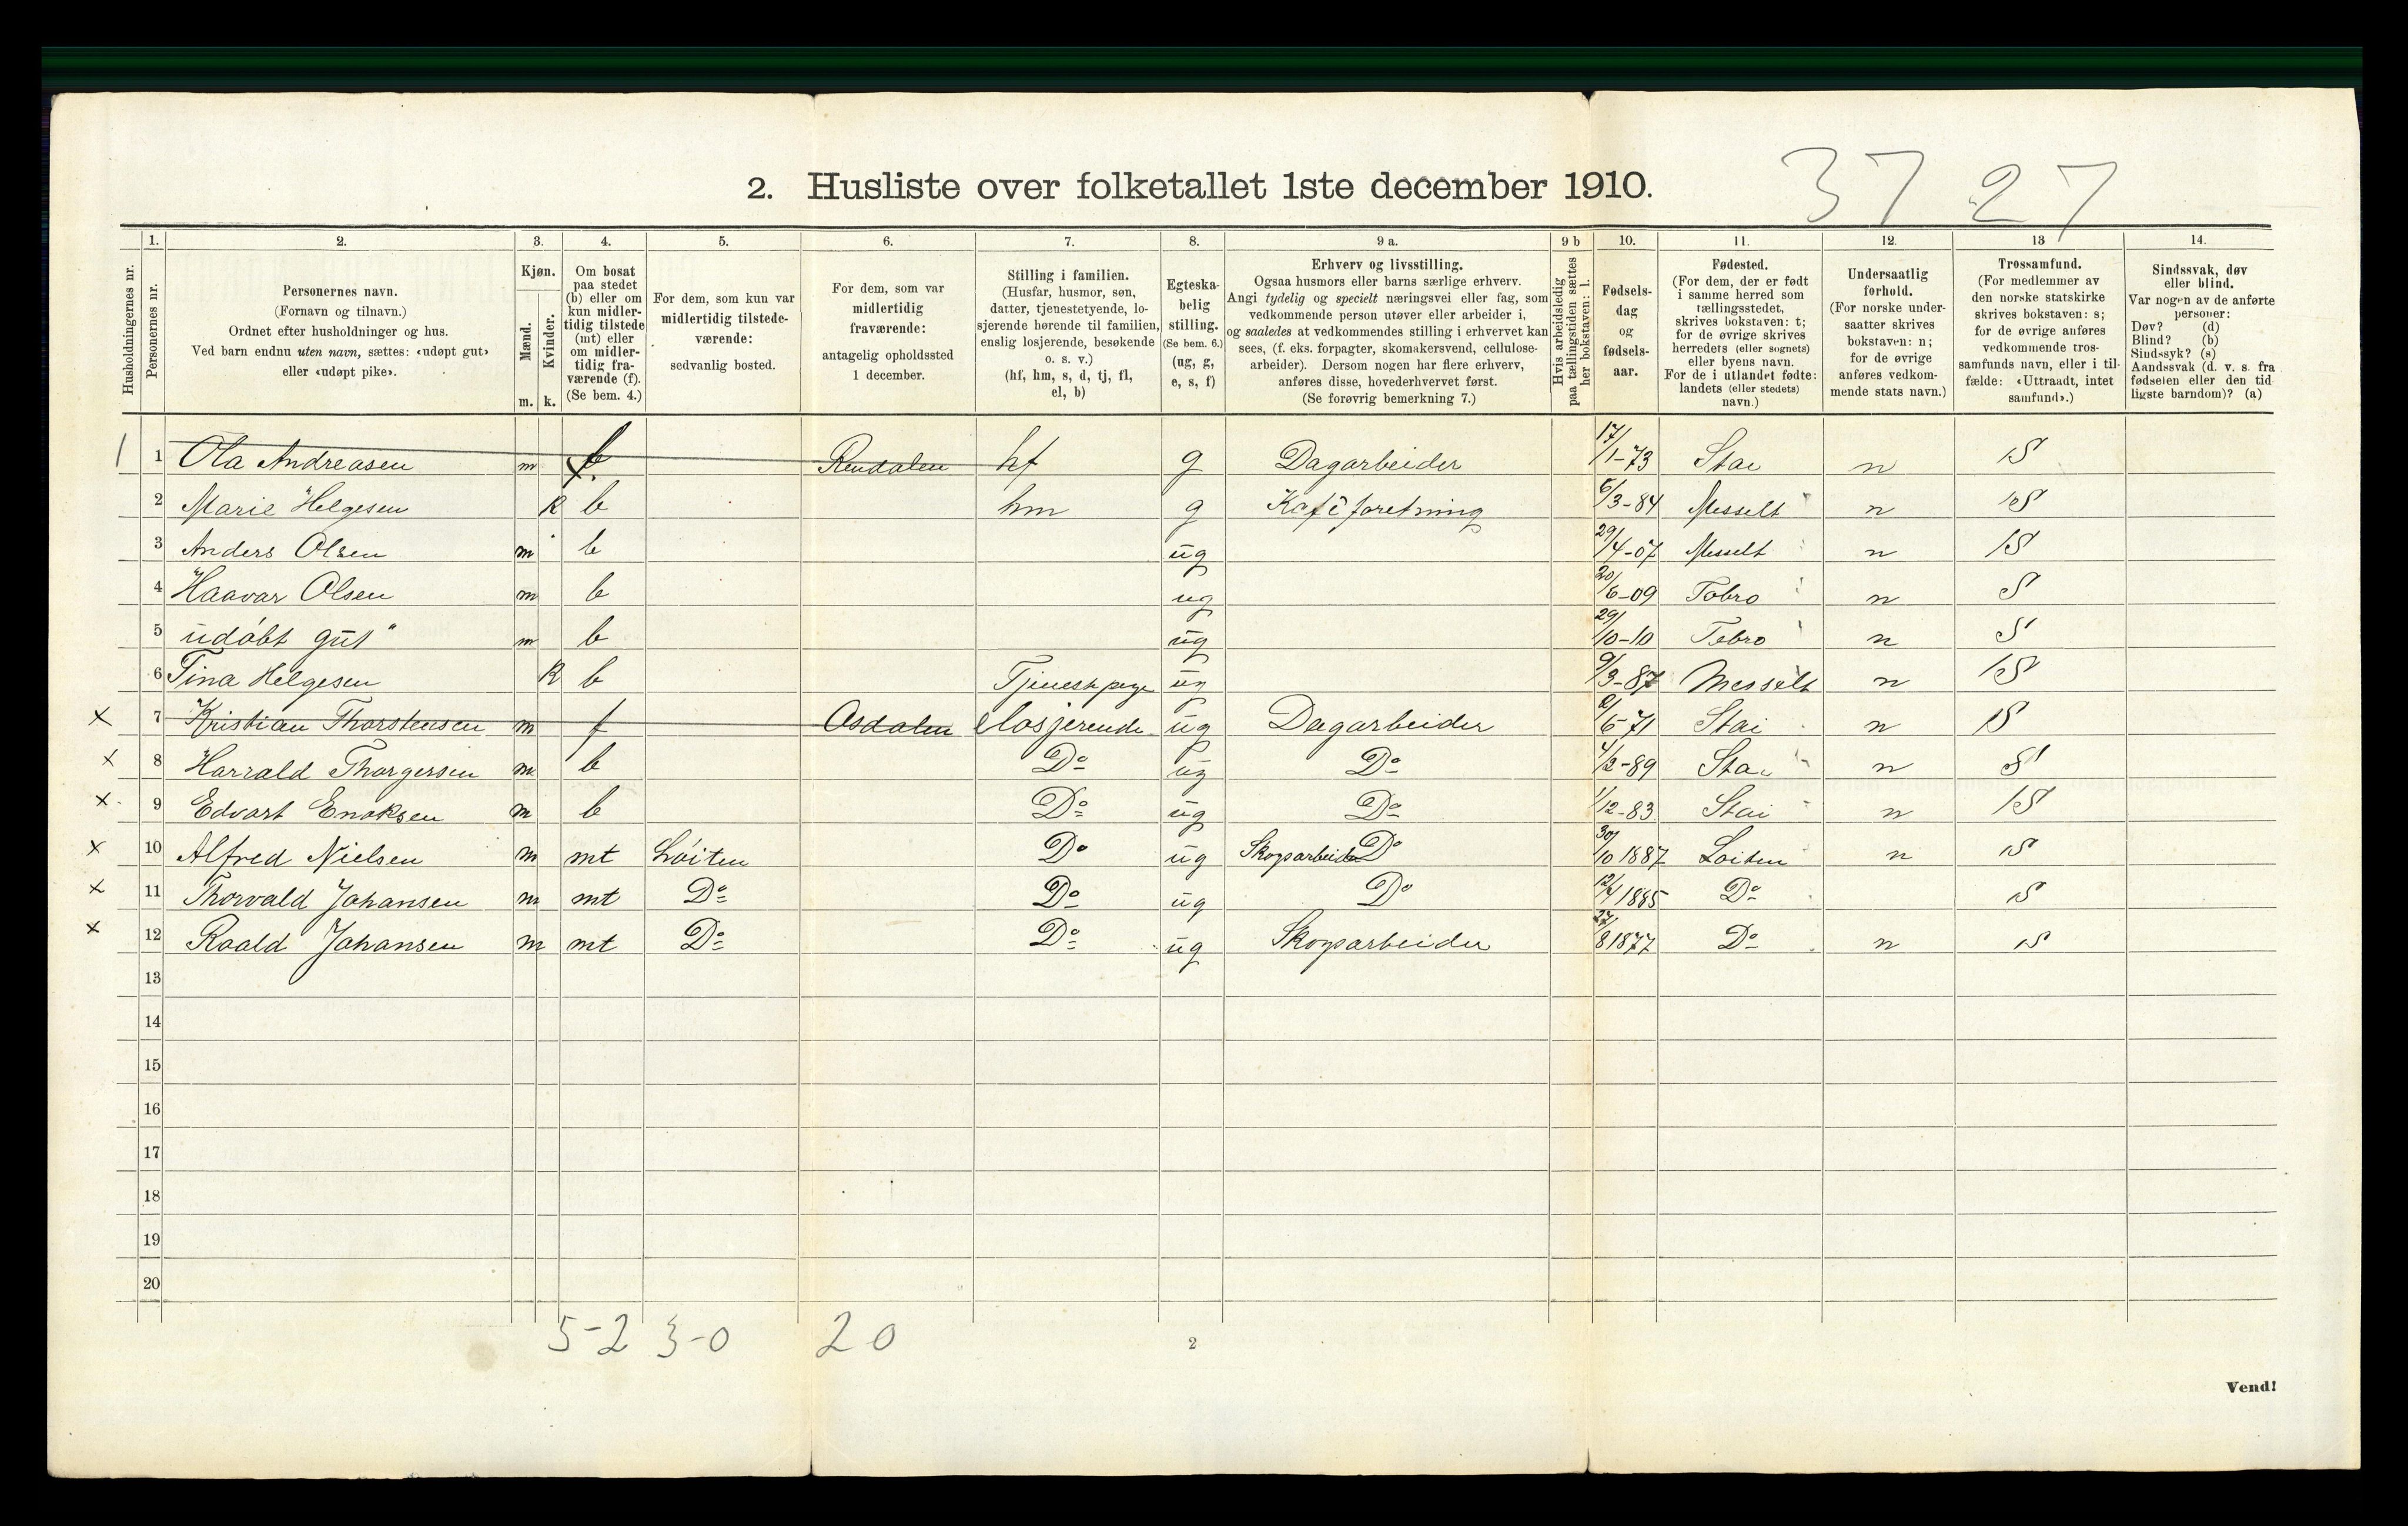 37 27
2. Husliste over folketallet 1ste december 1910.
1. 2. 3. 4. 5. 6. 7. 8. 9 a. 9 b 10. 11. 12. 13 14.
Husholdningernes nr.
Personernes nr.
Personernes navn.
(Fornavn og tilnavn.)
Ordnet efter husholdninger og hus.
Ved barn endnu uten navn, sættes: «udøpt gut»
eller «udøpt pike».
Kjøn.
Mænd.
Kvinder.
m. k.
Om bosat
paa stedet
(b) eller om
kun midler-
tidig tilstede
(mt) eller
om midler-
tidig fra-
værende (f).
(Se bem. 4.)
For dem, som kun var
midlertidig tilstede-
værende:
sedvanlig bosted.
For dem, som var
midlertidig
fraværende:
antagelig opholdssted
1 december.
Stilling i familien.
(Husfar, husmor, søn,
datter, tjenestetyende, lo-
sjerende hørende til familien,
enslig losjerende, besøkende
o. s. v.)
(hf, hm, s, d, tj, fl,
el, b)
Egteska-
belig
stilling.
(Se bem. 6.)
(ug, g,
e, s, f)
Erhverv og livsstilling.
Ogsaa husmors eller barns særlige erhverv.
Angi tydelig og specielt næringsvei eller fag, som
vedkommende person utøver eller arbeider i,
og saaledes at vedkommendes stilling i erhvervet kan
sees, (f. eks. forpagter, skomakersvend, cellulose-
arbeider). Dersom nogen har flere erhverv,
anføres disse, hovederhvervet først.
(Se forøvrig bemerkning 7.)
Hvis arbeidsledig
paa tællingstiden sættes
her bokstaven: l.
Fødsels-
dag
og
fødsels-
aar.
Fødested.
(For dem, der er født
i samme herred som
tællingsstedet,
skrives bokstaven: t;
for de øvrige skrives
herredets (eller sognets)
eller byens navn.
For de i utlandet fødte:
landets (eller stedets)
navn.)
Undersaatlig
forhold.
(For norske under-
saatter skrives
bokstaven: n;
for de øvrige
anføres vedkom-
mende stats navn.)
Trossamfund.
(For medlemmer av
den norske statskirke
skrives bokstaven: s;
for de øvrige anføres
vedkommende tros-
samfunds navn, eller i til-
fælde: «Uttraadt, intet
samfund».)
Sindssvak, døv
eller blind.
Var nogen av de anførte
personer:
Døv? (d)
Blind? (b)
Sindssyk? (s)
Aandssvak (d. v. s. fra
fødselen eller den tid-
ligste barndom)? (a)
1 1 Ola Andreasen m f Rendalen hf g Dagarbeider 17/1-73 Stai n S
2 Marie Helgesen k b hm g Kafeforetning 6/3-84 Messelt n S
3 Anders Olsen m b ug 29/4-07 Messelt n S
4 Haavar Olsen m b ug 20/6-09 Tobro n S
5 udøbt gut" m b ug 29/10-10 Tobro n S
6 Tina Helgesen k b Tjenestepige ug 9/3-87 Messelt n S
x 7 Kristian Thorstensen m f Osdalen elosjerende ug Dagarbeider /6-71 Stai n S
x 8 Harrald Thorgersen m b Do ug Do 4/2-89 Stai n S
x 9 Edvart Enoksen m b Do ug Do 1/12-83 Stai n S
x 10 Alfred Nielsen m mt Løiten Do ug Skogsarbeider Do 30/10 1887 Løiten n S
x 11 Thorvald Johansen m mt Do Do ug Do 12/4 1885 Do S
x 12 Roald Johansen m mt Do Do ug Skogsarbeider 27/8 1877 Do n S
13
14
15
16
17
18
19
20
5-2 3-0 2 0
2
Vend!